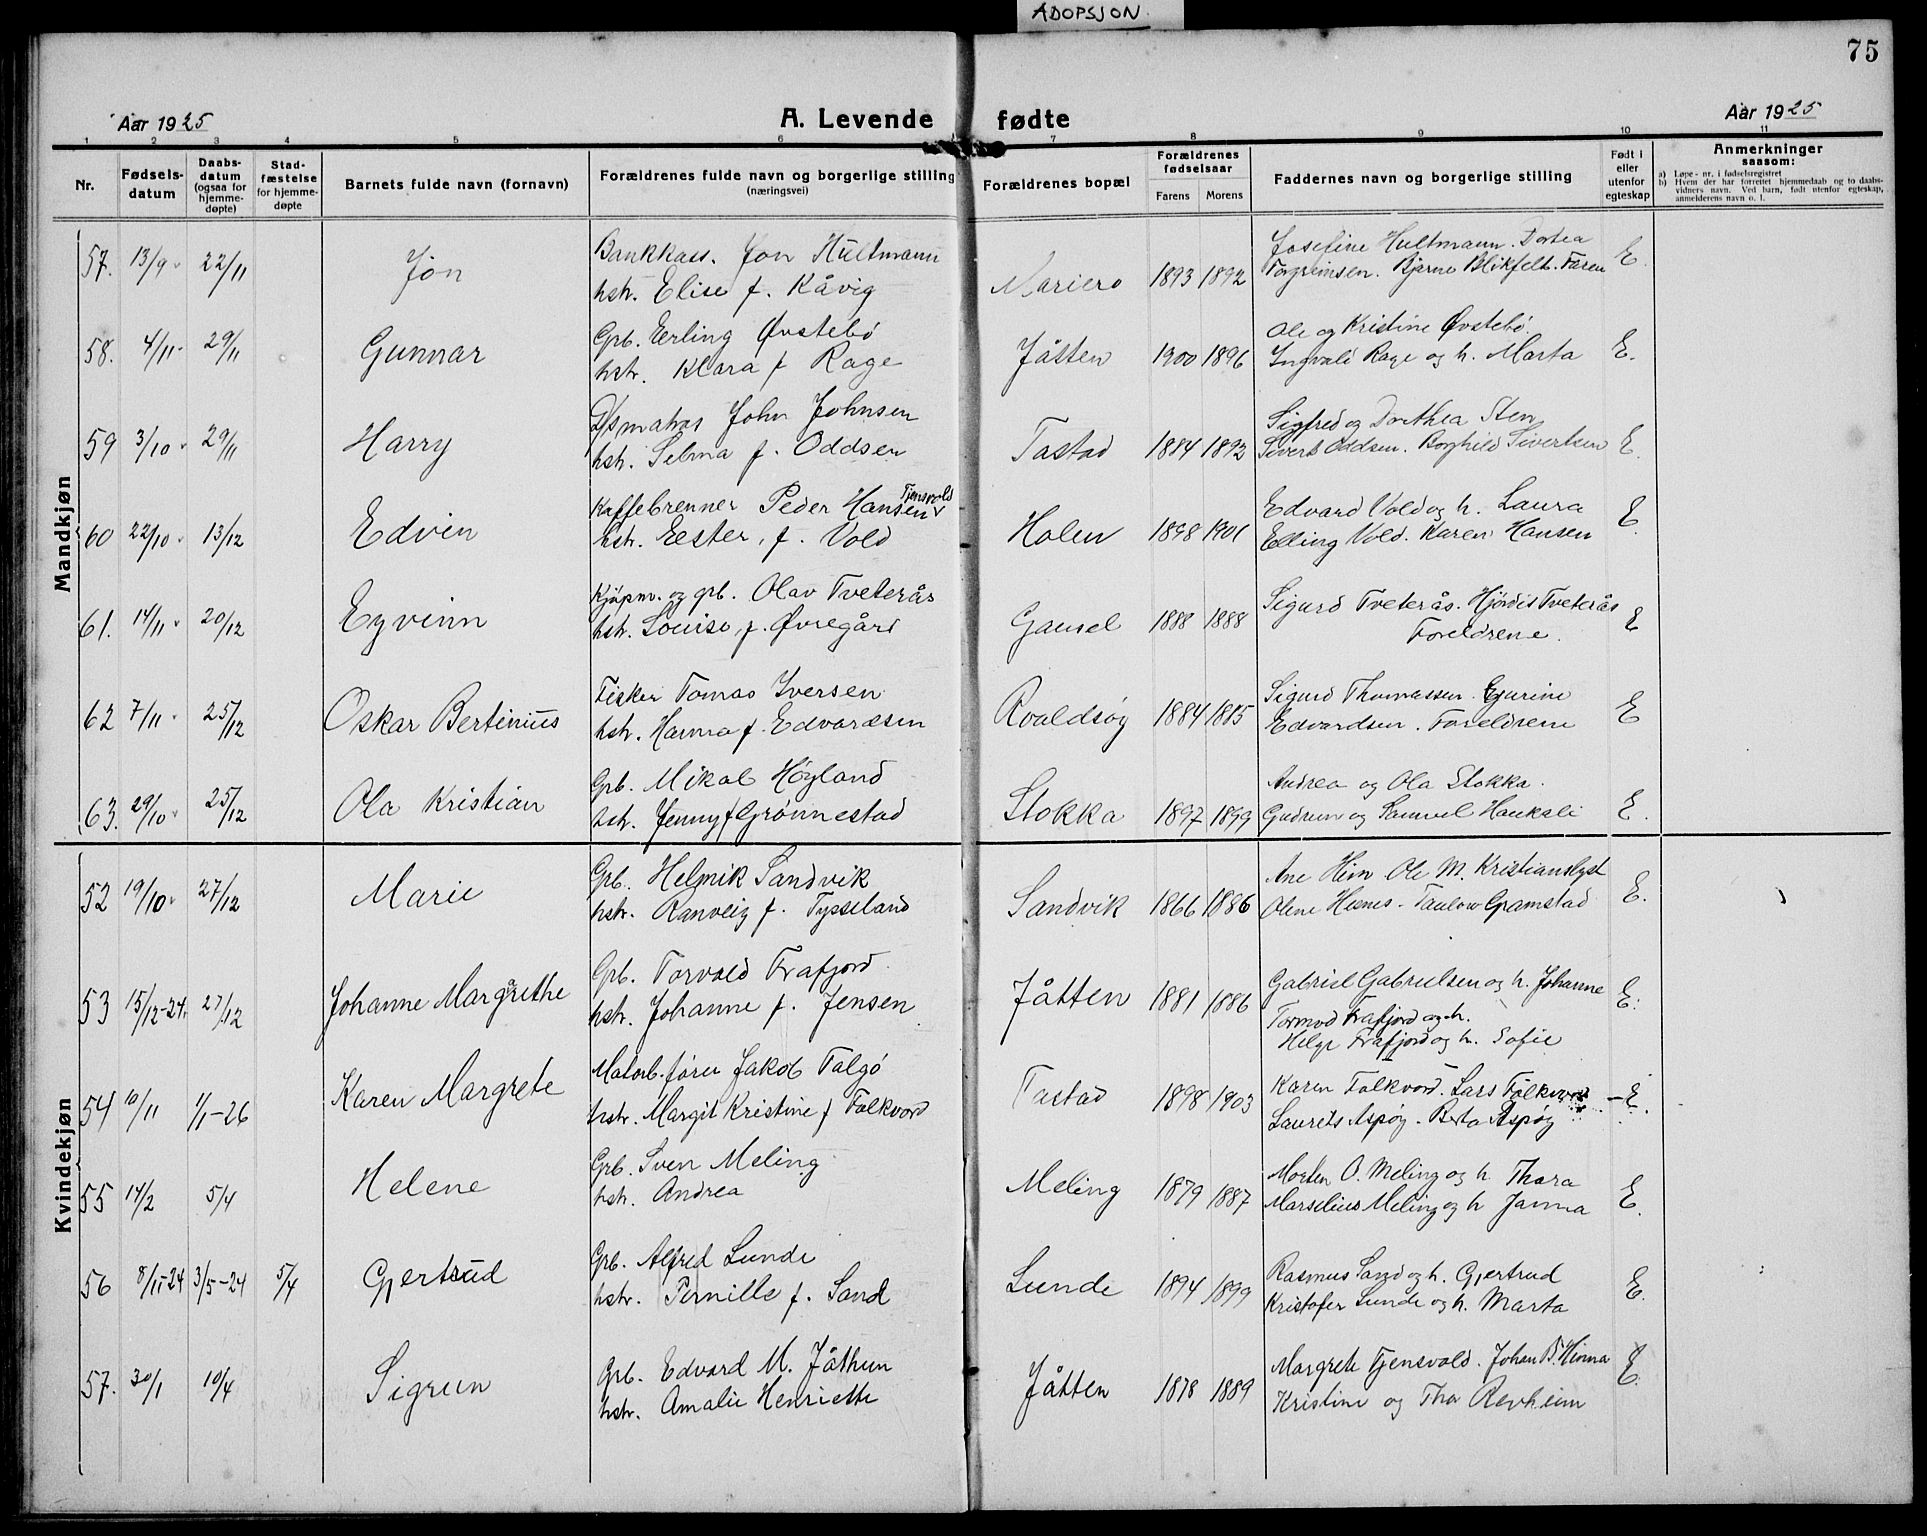 ADOPSJON.
75
Aar 1925
A. Levende fødte
Aar 1925
1 2 3 4 5 6 7 8 9 10 11
Nr.
Fødsels-
datum
Daabs-
datum
(ogsaa for
hjemme-
døpte)
Stad-
fæstelse
for hjemme-
døpte
Barnets fulde navn (fornavn)
Forældrenes fulde navn og borgerlige stilling
(næringsvei)
Forældrenes bopæl
Forældrenes
fødselsaar
Farens Morens
Faddernes navn og borgerlige stilling
Født i
eller
utenfor
egteskap
Anmerkninger
saasom:
a) Løpe-nr. i fødselsregistret
b) Hvem der har forrettet hjemmedaab og to daabs-
vidners navn. Ved barn, født utenfor egteskap,
anmelderens navn o. l.
Mandkjøn
57. 13/9 22/11 Jon Bankkass. Jon Hultmann
hstr. Elise f. Kåvig
Mariero 1893 1892 Josefine Hultmann. Dortea
Torgrimsen. Bjarne Blikfelt. Faren E.
58. 4/11 29/11 Gunnar Grb. Erling Øvstebö
hstr. Klara f Rage
Jåtten 1900 1896 Ole og Kristine Øvstebö.
Ingvald Rage og h. Marta E.
59 3/10 29/11 Harry D/S matros John Johnsen
hstr. Selma f. Oddsen
Tastad 1884 1892 Sigfred og Dorthea Sten
Sivert Oddsen. Borghild Sivertsen E.
60 22/10 13/12 Edvin Kaffebrenner Peder Hansen Tjensvold
hstr. Ester, f. Vold
Holen 1898 1901 Edvard Vold og h. Laura
Elling Vold. Karen Hansen E.
61. 14/11 20/12 Eyvinn Kjöpm. og grb. Olav Tveterås
hstr. Louise, f. Øvregård
Gausel 1888 1888 Sigurd Tveterås. Hjördis Tveterås
Foreldrene. E
62 7/11 25/12 Oskar Bertinius Fisker Tomas Iversen
hstr. Hanna f. Edvardsen
Roaldsøy 1884 1885 Sigurd Thomassen. Gjurine
Edvardsen. Foreldrene E
63. 29/10 25/12 Ola Kristian Grb. Mikal Høyland
hstr. Jenny f Grönnestad
Stokka 1897 1899 Andrea og Ola Stokka.
Gudrun og Samuel Haukali E.
Kvindekjøn
52 19/10 27/12 Marie Grb. Helmik Sandvik
hstr. Ranveig f. Tysseland
Sandvik 1866 1886 Ane Ole M. Kristianslyst
Olene Gramstad E.
53 15/12-24. 27/12 Johanne Margrethe Grb. Torvald Frafjord
hstr. Johanne f. Jensen
Jåtten 1881 1886 Gabriel Gabrielsen og h. Johanne
Tormod Frafjord og h.
Helge Frafjord og h. Sofie E.
54 10/11 1/1-26 Karen Margrete Motorb. förer Jakob Talgö
hstr. Margit Kristine f Folkvord
Tastad 1898 1903 Karen Folkvord. Lars Folkvord
Laurits Aspöy. Berta Aspöy E.
55 14/2 5/4 Helene Grb. Sven Meling
hstr. Andrea
Meling 1879 1887 Morten O. Meling og h Thora
Marselius Meling og h Janna E.
56 8/11-24 3/5-24 5/4 Gjertrud Grb. Alfred Lunde
hstr. Pernille f. Sand
Lunde 1894 1899 Rasmus Sand og h. Gjertrud
Kristofer Lunde og h. Marta E.
57. 30/1 10/4 Sigrun Grb. Edvard M. Jåthun
hstr. Amalie Henriette
Jåtten 1878 1889 Margrete Tjensvold. Johan B. Hinna
Kristine og Thor Revheim E.